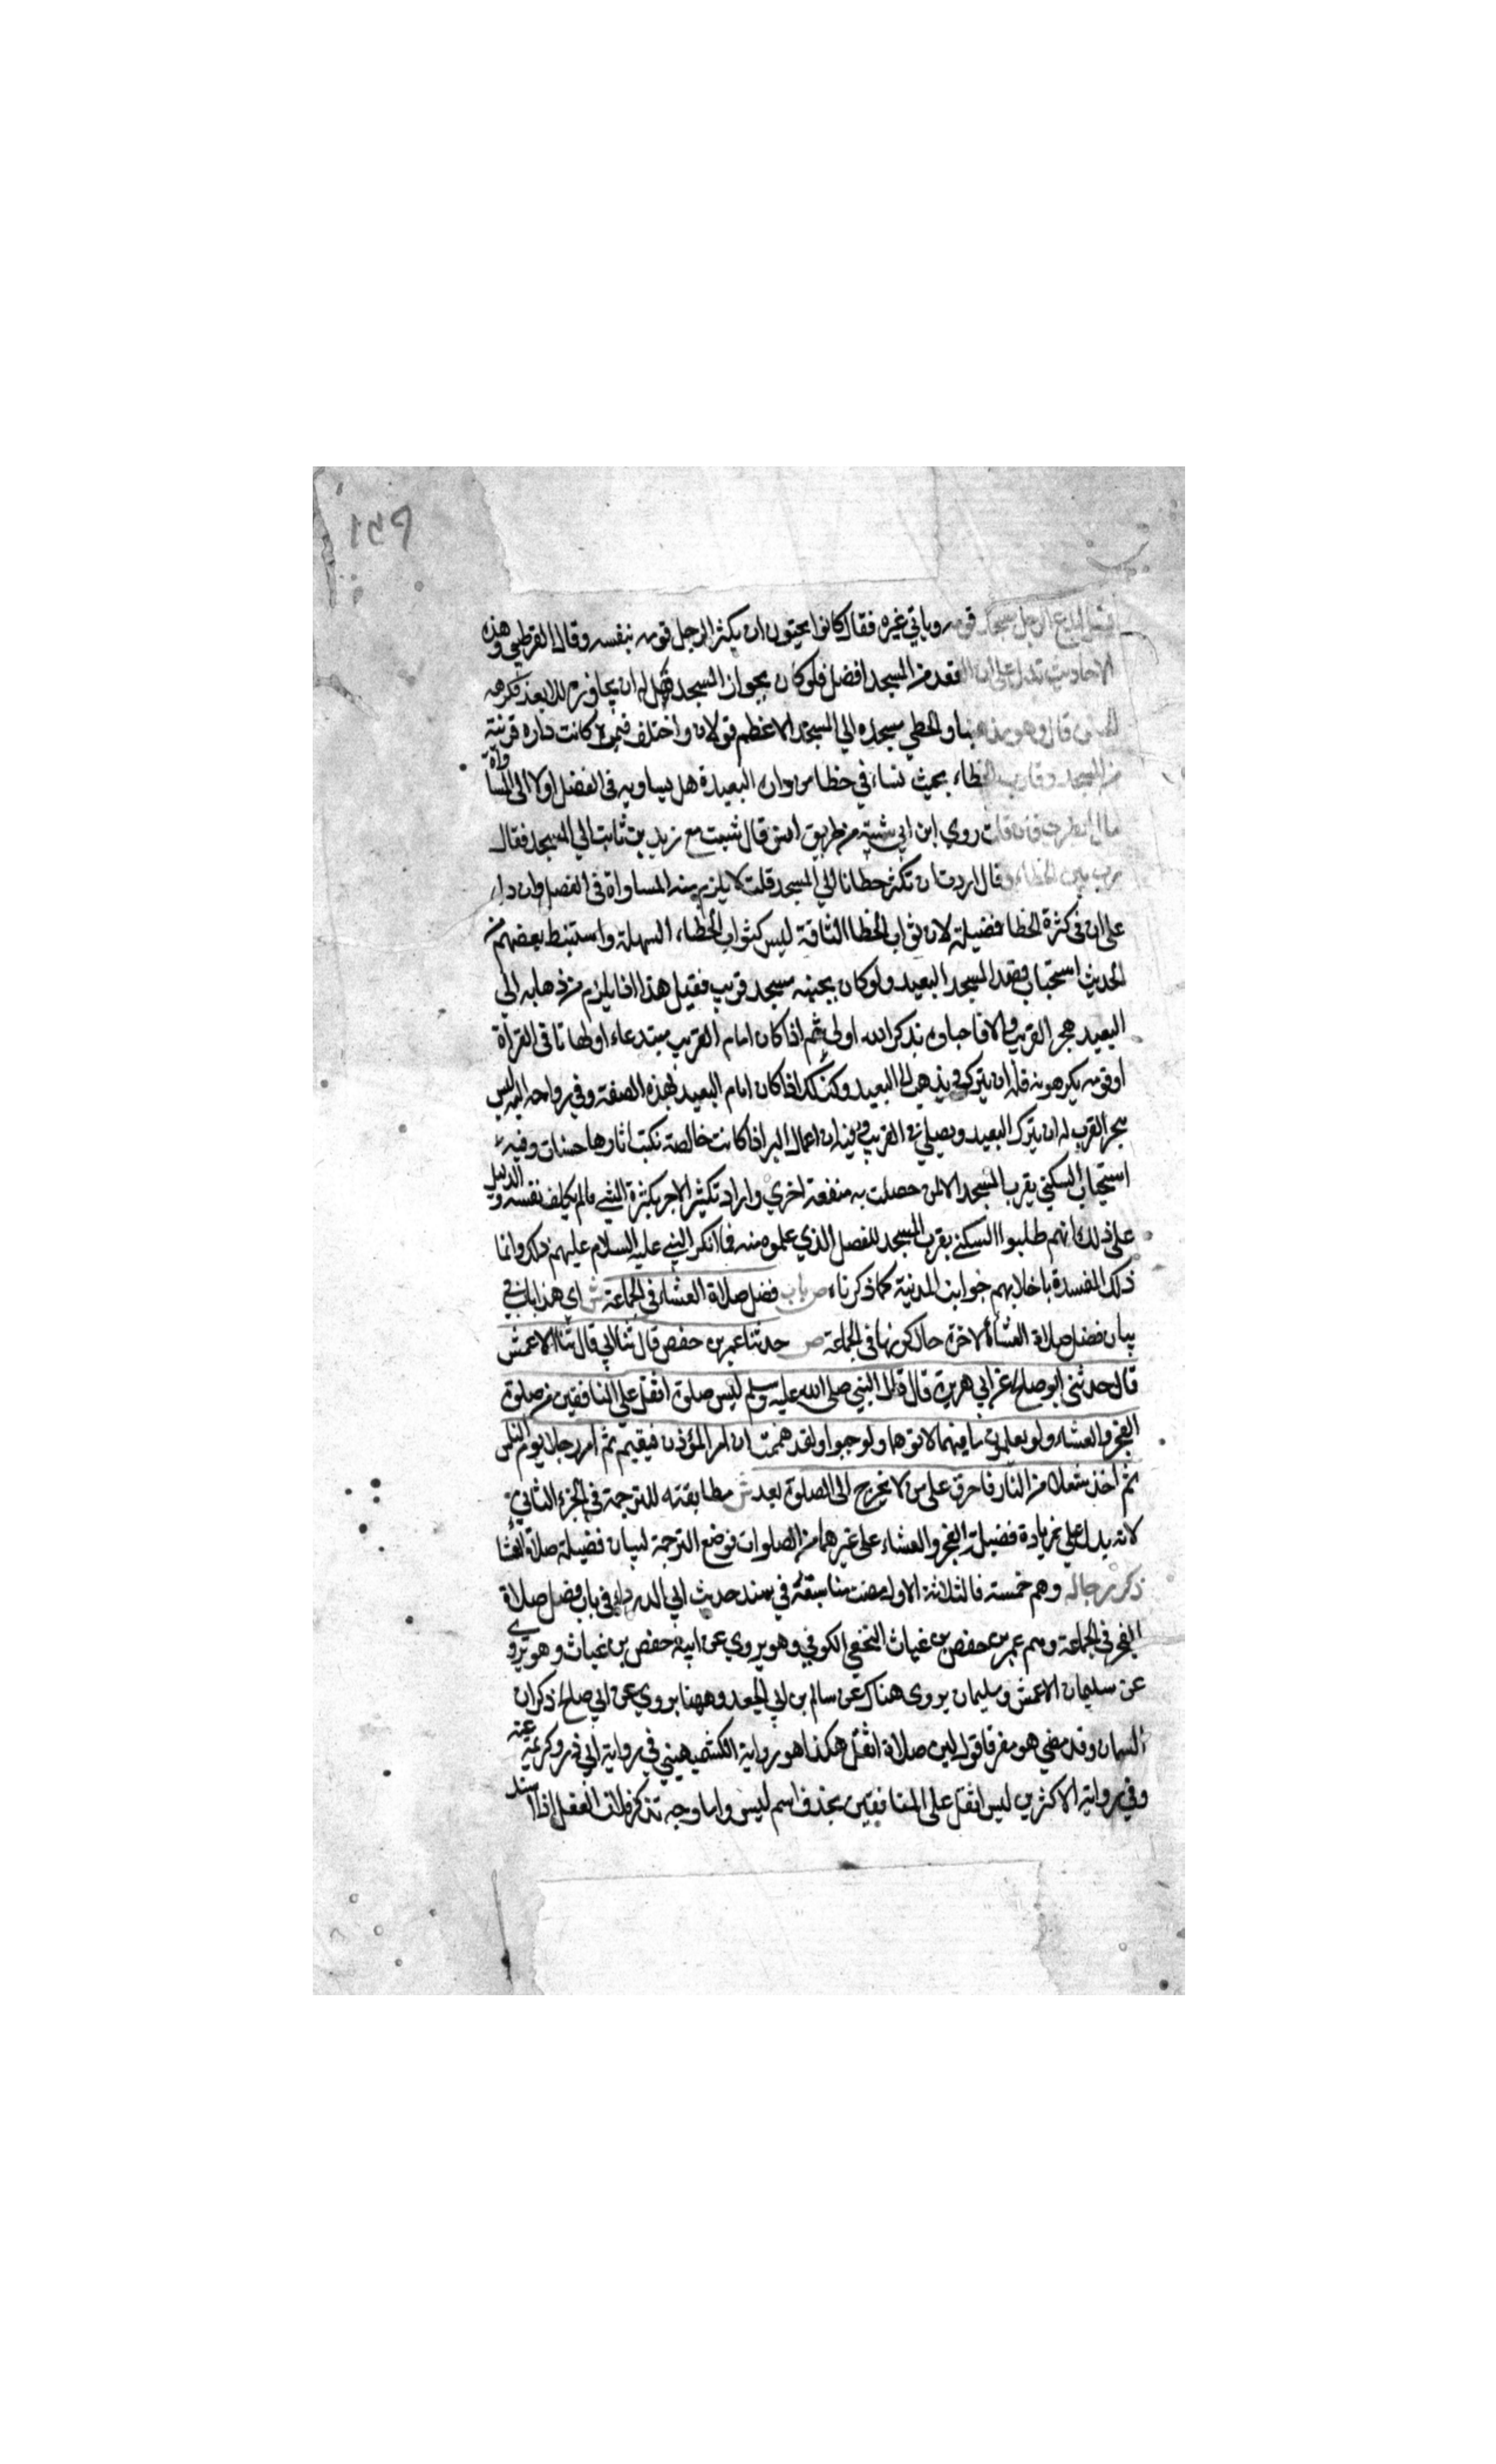 الرجل مسجد قومه وياتي غيره فقال كانوا يحبون ان يكثر الرجل قومه بنفسه وقال القرطبي وهذه
الاحاديث تدل على ان البعد من المسجد افضل فلو كان بجوار المسجد فهل له ان يجاوزه للابعد فكرهه
قال وهو مذهبنا وفي تخطي مسجده الى المسجد الاعظم قولان واختلف فيمن كانت داره قريبة
من المسجد وقارب الخطاء بحيث تساوي خطا من داره البعيدة هل يساويه في الفضل اولا الى المساواة
مال الطبري فان قلت روي ابن ابي شيبة من طريق انس قال مشيت مع زيد بن ثابت الى المسجد فقال
بين الخطاء وقال اردت ان تكثر خطانا الى المسجد قلت لا يلزم منه المساواة في الفضل وان دل
على ان في كثرة الخطا فضيلة لان ثواب الخطا الشاقة ليس كثواب الخطاء السهلة واستنبط بعضهم من
الحديث استحباب قصد المسجد البعيد ولو كان بجنبه مسجد قريب فقيل هذا اذا لم يلزم من ذهابه الى
البعيد هجر القريب والا فاحياؤه بذكر الله اولى ثم اذا كان امام القريب مبتدعا او لحانا في القراة
او قومه يكرهونه فله ان يتركه ويذهب الى البعيد وكذلك اذا كان امام البعيد بهذه الصفة وفي رواحه اليه ليس
هجر القريب له ان يترك البعيد ويصلي في القريب وفيه ان اعمال البر اذا كانت خالصة تكتب اثارها حسنات وفيه
استحباب السكنى بقرب المسجد الا لمن حصلت به منفعة اخري واراد تكثير الاجر بكثرة المشي ما لم يكلف نفسه والدليل
على ذلك انهم طلبوا السكنى بقرب المسجد للفضل الذي علموه منه فما انكر النبي عليه السلام عليهم ذلك وانما
ذلك المفسدة باخلائهم جوانب المدينة كما ذكرناه ص باب فضل صلاة العشاء في الجماعة ش اي هذا باب في
بيان فضل صلاة العشاء الاخرة حال كونها في الجماعة ص حدثنا عمر بن حفص قال ثنا ابي قال ثنا الاعمش
قال حدثني ابو صالح عن ابي هريرة قال قال النبي صلى الله عليه وسلم ليس صلوة اثقل على المنافقين من صلوة
الفجر والعشاء ولو يعلمون ما فيهما لاتوهما ولو حبوا ولقد هممت ان امر المؤذن فيقيم ثم امر رجلا يوم الناس
ثم اخذ شعلا من النار فاحرق على من لا يخرج الى الصلوة بعد ش مطابقته للترجمة في الجزء الثاني
لانه يدل على زيادة فضيلة الفجر والعشاء على غيرهما من الصلوات فوضع الترجمة لبيان فضيلة صلاة العشا
ذكر رجاله وهم خمسة فالثلاثة الاول مضت متناسقة في سند حديث ابي الدرداء في باب فضل صلاة
الفجر في الجماعة وهم عمر بن حفص بن غياث النخعي الكوفي وهو يروي عن ابيه حفص بن غياث وهو يروي
عن سليمان الاعمش وسليمان يروي هناك عن سالم بن ابي الجعد وههنا يروي عن ابي صالح ذكوان
السمان وقد مضي هو مفرقا قوله ليس صلاة اثقل هكذا هو رواية الكشميهني في رواية ابي ذر وكريمة عنه
وفي رواية الاكثرين ليس اثقل على المنافقين بحذف اسم ليس واما وجه تذكير فلان الفعل اذا اسند